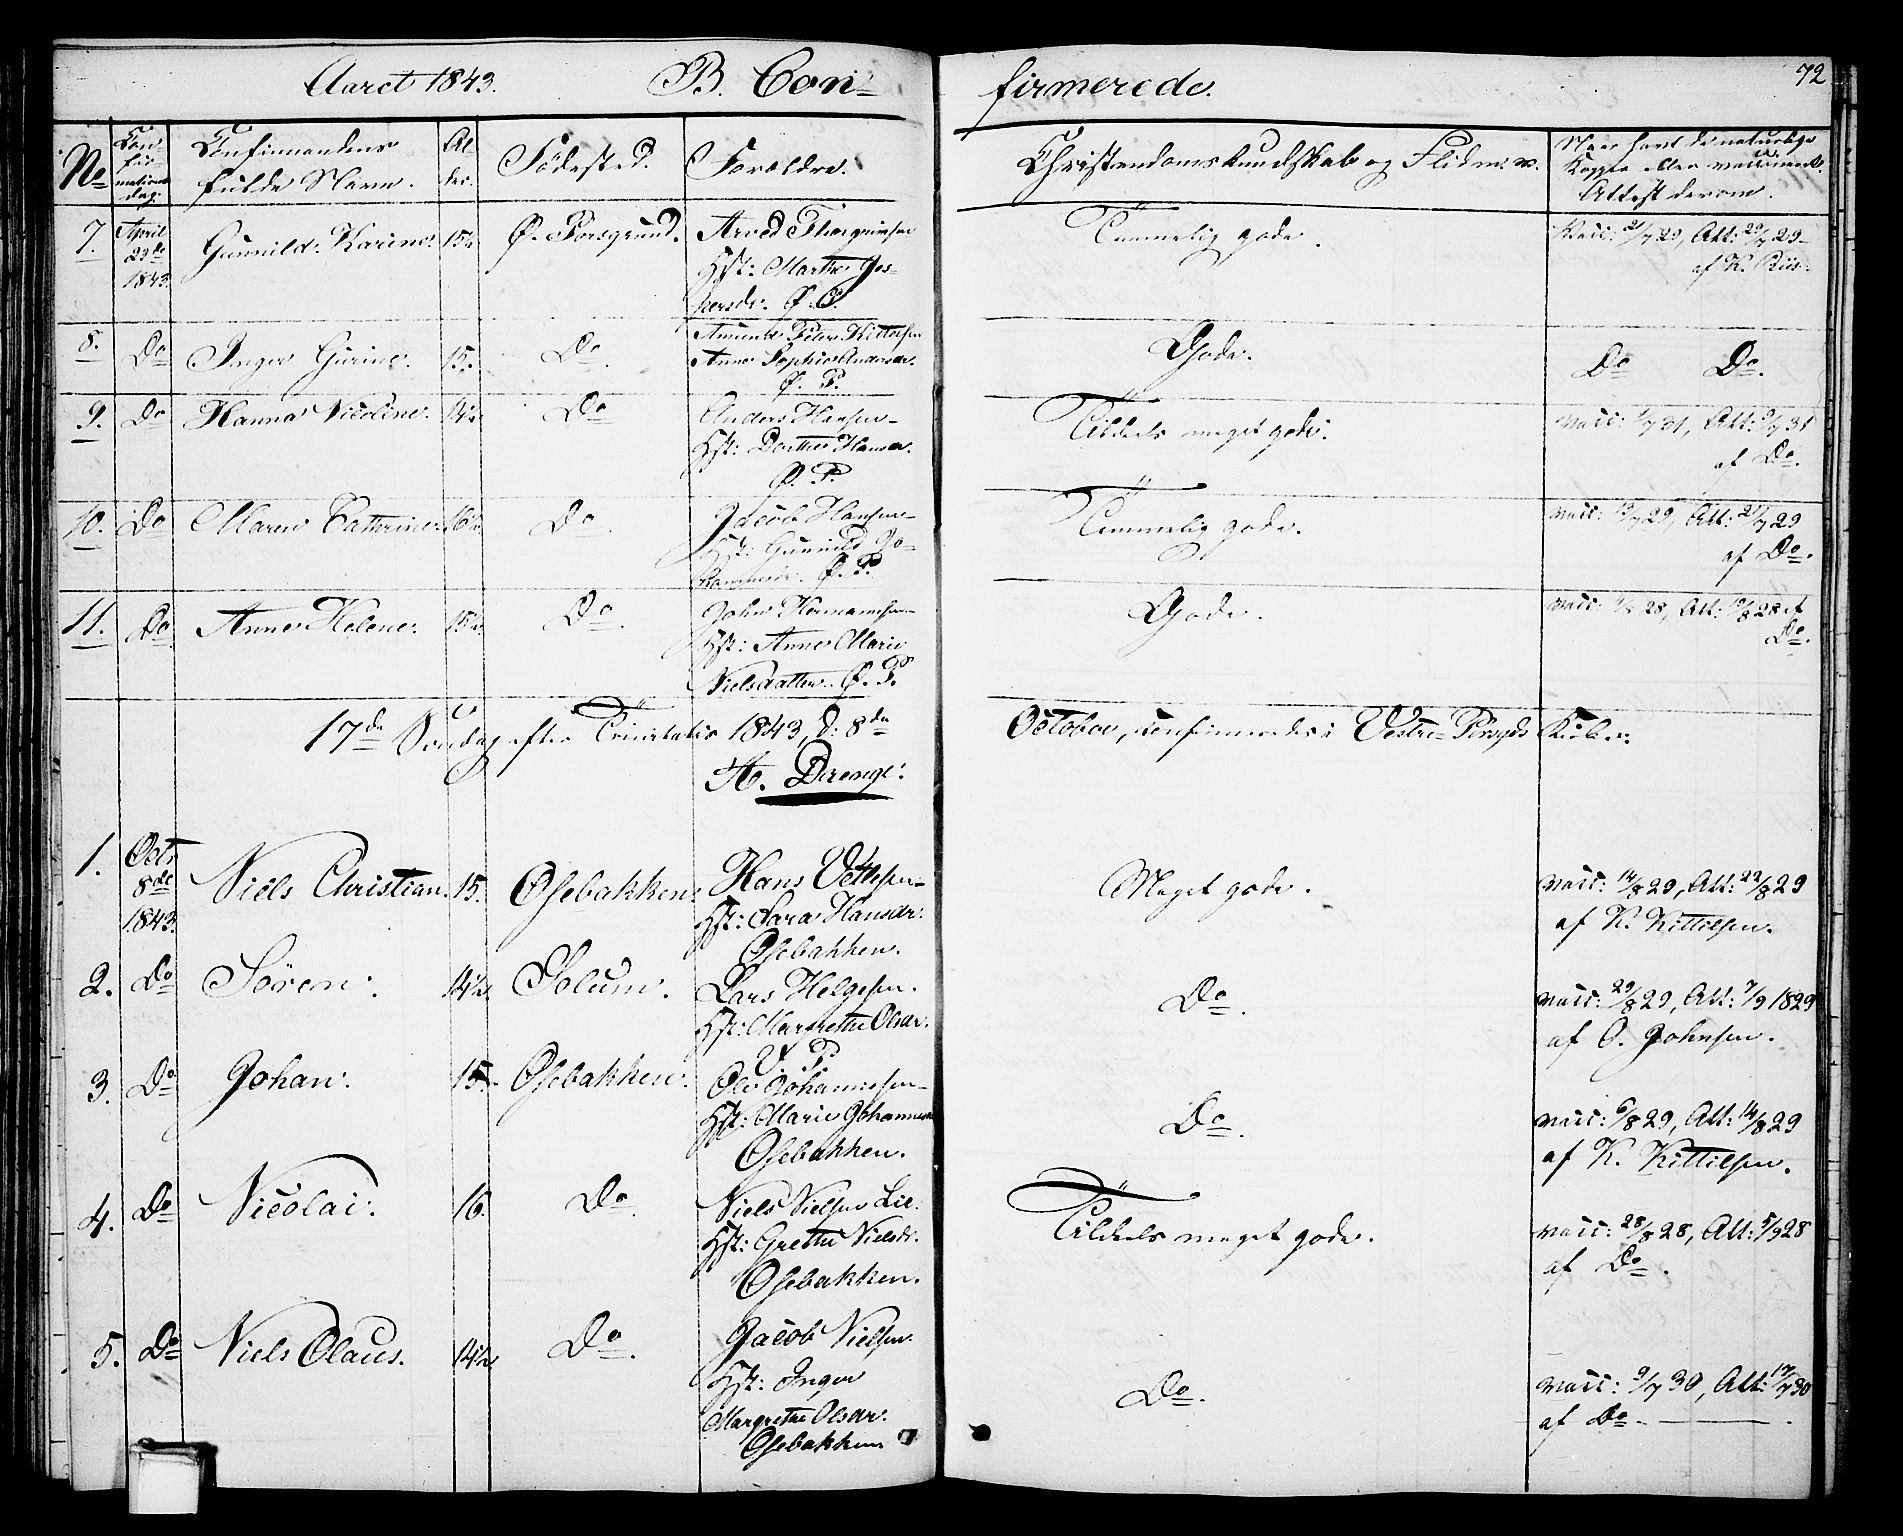 Aaret 1843. B. Confirmerede. 72
No Confirmations dag. Confirmandens fulde Navn. Alder. Födested. Forældre. Christendomskundskab og Flid m. v. Naar havt de naturlige Kopper eller vaccineret. Attest derom.
7. April 23de 1843. Gunnild Karine. 15½. Ø. Porsgrund. Arved Thorgrimsen
Hst: Marthe Jes-
persdr. Ø. P.
Temmelig gode. Vacc: 21/7 29, Att: 29/7 29
af K. Riis.
8. Do Inger Gurine. 15. Do. Amund Peter Kittelsen
Anne Sophie Andersdr.
Ø. P.
Gode. Do Do.
9. Do Hanna Nicoline. 14½ Do Anders Hansen
Hst: Dorthe Hansdr.
Ø. P.
Tildeels meget gode. Vacc: 1/7 31, Att: 9/7 31
af Do.
10. Do Maren Cathrine. 16½. Do Jacob Hansen
Hst: Gunnild Jo-
hannesdr. Ø. P.
Temmelig gode. Vacc: 19/7 29, Att: 27/7 29
af Do.
11. Do Anne Helene. 15½. Do. John Hermannsen
Hst: Anne Marie
Nielsdatter. Ø. P.
Gode. Vacc: 1/8 28, Att: 10/8 28 af
Do.
17de Söndag efter Trinitatis 1843, d: 8de October, confirmeredes i Vestre-Porsgds Kirke:
A. Drenge:
1. Octr 8de 1843. Niels Christian. 15. Osebakken. Hans Vetlesen
Hst: Sara Hansdr.
Osebakken.
Meget gode. Vacc: 14/8 29, Att: 22/8 29
af K. Kittilsen.
2. Do Sören. 14½. Solum. Lars Helgesen.
Hst: Margrethe Olsdr.
V. P.
Do. Vacc: 29/8 29, Att: 7/9 1829
af O. Johnsen.
3. Do Johan. 15. Osebakken. Ole Johannesen
Hst: Marie Johannesdr
Osebakken.
Do. Vacc: 6/8 29, Att: 14/8 29
af K. Kittilsen.
4. Do Nicolai. 16. Do. Niels Nielsen Lie.
Hst: Grethe Nielsdr.
Osebakken.
Tildeels meget gode. Vacc: 28/8 28, Att: 5/9 28
af Do.
5. Do Niels Olaus. 14½ Do. Jacob Nielsen.
Hst: Inger
Margrethe Olsdr.
Osebakken
Do. Vacc: 9/7 30, Att: 17/7 30
af Do.